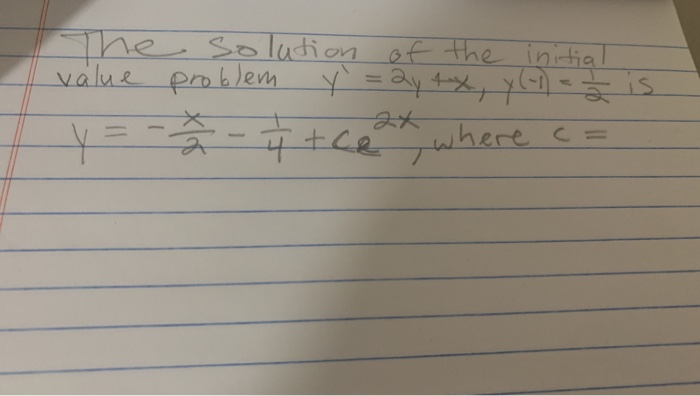 The solution of the initial
value problem y' = 2y + x, y(-1) = 1/2 is
y = - x/2 - 1/4 + ce^2x, where c =